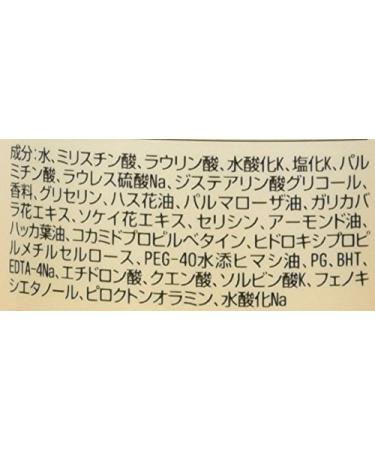 成分:水、ミリスチン酸、ラウリン酸、水酸化K、塩化K、パル
ミチン酸、ラウレス硫酸Na、ジステアリン酸グリコール、
香料、グリセリン、ハス花油、パルマローザ油、ガリカバ
ラ花エキス、ソケイ花エキス、セリシン、アーモンド油、
ハッカ葉油、コカミドプロピルベタイン、ヒドロキシプロピ
ルメチルセルロース、PEG-40水添ヒマシ油、PG、BHT、
EDTA-4Na、エチドロン酸、クエン酸、ソルビン酸K、フェノキ
シエタノール、ピロクトンオラミン、水酸化Na